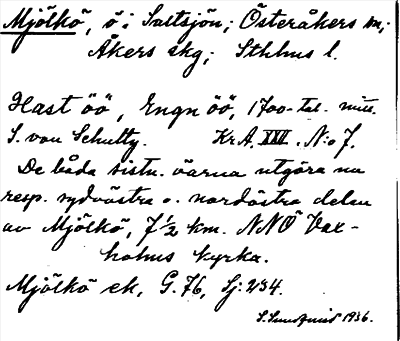 Mjölkö, ö i Saltsjön; Österåkers sn,
Åkers skg; Sthlms l.
Hast öö, Engn öö, 1700-tal. mitt.
S. von Schultz. Kr A. XXI. N:o 7.
De båda sistn. öarna utgöra nu
resp. sydvästra o. nordöstra delen
av Mjölkö, 7½ km. NNÖ Vax-
holms kyrka.
Mjölkö ek, G. 76, Sj: 234.
S. Sundqvist 1936.